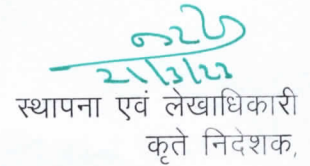 21/3/23
स्थापना एवं लेखाधिकारी
कृते निदेशक,